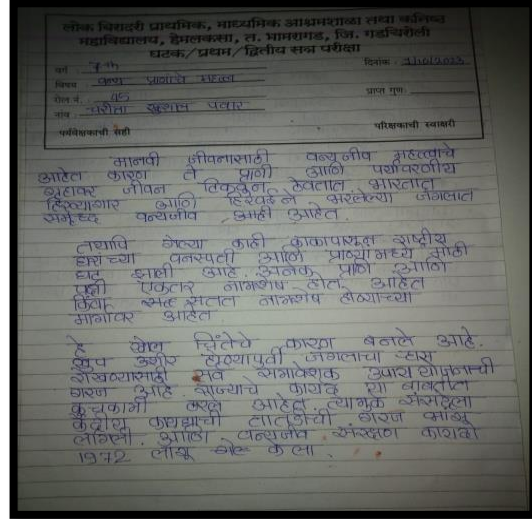 लोक बिरादरी प्राथमिक, माध्यमिक आश्रमशाळा तथा कनिष्ठ
महाविद्यालय, हेमलकसा, त. भामरागड, जि. गडचिरोली
घटक/प्रथम/द्वितीय सत्र परीक्षा
वर्ग : 7th दिनांक : 7/10/2023
विषय : वन्य प्राणांचे महत्त्व
रोल नं. : 45 प्राप्त गुण :
नाव : पवार
पर्यवेक्षकाची सही परिक्षकाची स्वाक्षरी
मानवी जीवनासाठी वन्यजीव महत्त्वाचे
आहेत कारण ते प्राणी आणि पर्यावरणीय
ग्रहावर जीवन टिकवून ठेवतात भारतात
हिरव्यागार आणि हिरवाईने भरलेल्या जंगलात
समृध्द वन्यजीव आहेत.
तथापि गेल्या काही काळापासून राष्ट्रीय
वनस्पती आणि प्राण्यांमध्ये मोठी
घट झाली आहे. अनेक प्राणी आणि
पक्षी एकतर नामशेष होत आहेत
किंवा सतत नामशेष होण्याच्या
मार्गावर आहेत.
हे खोल चिंतेचे कारण बनले आहे.
खुप उशीर होण्यापुर्वी जंगलाचा ऱ्हास
रोखण्यासाठी सर्व समावेशक उपाय योजनांची
गरज आहे. राज्याचे कायदे या बाबतीत
कुचकामी ठरले आहेत. त्यामुळे संसदेला
केंद्रीय कायद्याची तातडीची गरज भासू
लागली. आणि वन्यजीव संरक्षण कायदा
1972 लागू केला.